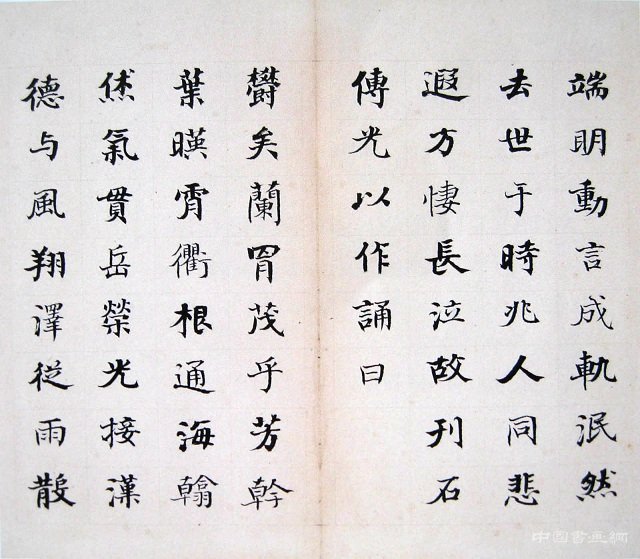 端明動言成軌泯然
去世于時兆人同悲
遐方悽長泣故刊石
傳光以作誦曰
欝矣蘭冑茂乎芳幹
葉暎霄衢根通海翰
烋氣貫岳榮光接漢
德与風翔澤従雨散
中國書画網